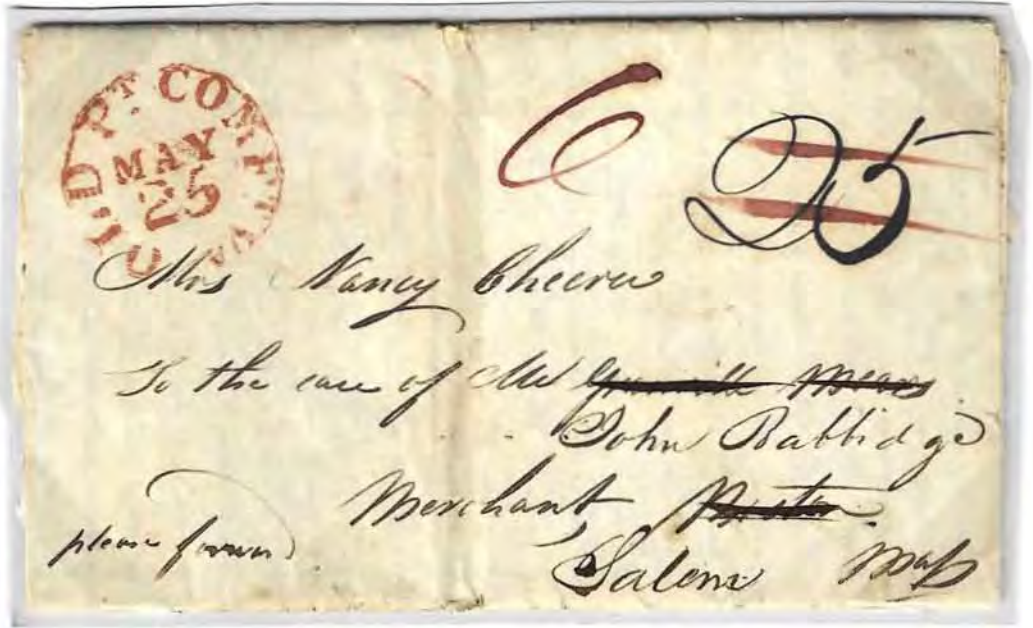 OLD PT. COMFT. VA.
MAY
25
6
25
Mrs Nancy Cheever
To the care of Mr
John Babbidge
Merchant, Boston
Salem Mass
please forward